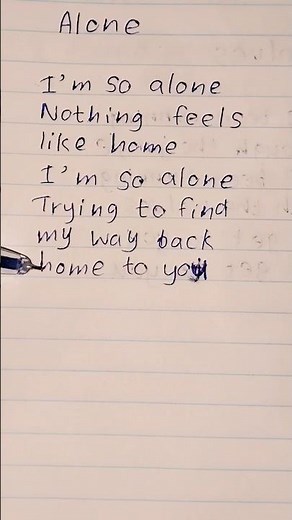 Alone
I'm so alone
Nothing feels
like home
I'm so alone
Trying to find
my way back
home to you